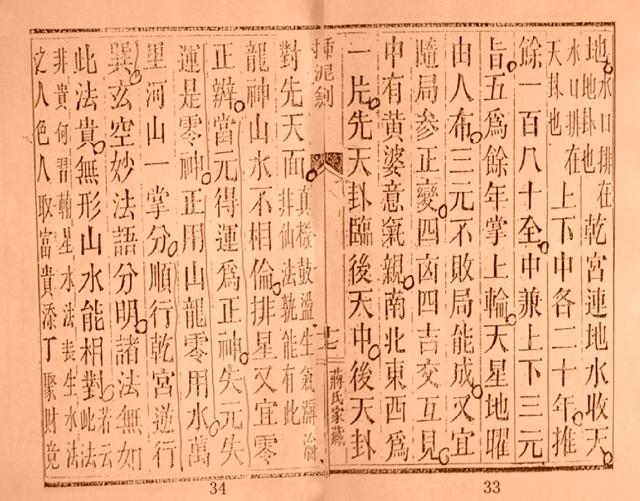 地水口排在地地卦也乾宮連地水收天
水口排在天卦也上下中各二十年推
餘一百八十全中兼上下三元
旨五爲餘年掌上輪天星地曜
由人布三元不敗局能成又宜
隨局參正變四凶四吉交互見
中有黃婆意氣親南北東西爲
一片先天卦臨後天中後天卦
揷泥劍
十七
蔣氏家藏
對先天面真機鼓盪生氣瀰淪非仙法孰能有此
龍神山水不相倫排星又宜零
正辨當元得運爲正神失元失
運是零神正用山龍零用水萬
里河山一掌分順行乾宮逆行
巽玄空妙法語分明諸法無如
此法貴無形山水能相對若云此法
非貴何習輔星水法長生水法
之人色人取富貴添丁聚財竟
34
33